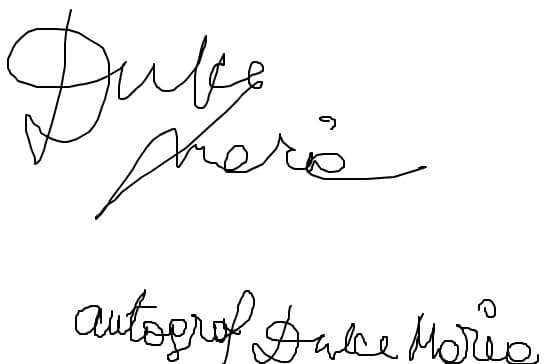 Dulce
Maria
autograf Dulce Maria